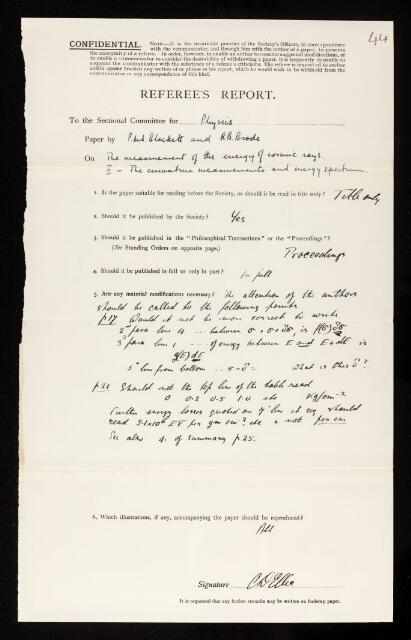 44
CONFIDENTIAL. NOTE.—It is the invariable practice of the Society's Officers, in correspondence
with the communicator, and through him with the author of a paper, to preserve
the anonymity of a referee. In order, however, to enable an author to consider suggested modifications, or
to enable a communicator to consider the desirability of withdrawing a paper, it is frequently desirable to
acquaint the communicator with the substance of a referee's criticisms. The referee is requested to enclose
within square brackets any section of or phrase in his report, which he would wish to be withheld from the
communicator in any correspondence of this kind.
REFEREE'S REPORT.
To the Sectional Committee for Physics
Paper by P.M.S. Blackett and R.B. Brode
On The measurement of the energy of cosmic rays.
II - The curvature measurements and energy spectrum.
1. Is the paper suitable for reading before the Society, or should it be read in title only? Title only
2. Should it be published by the Society? Yes
3. Should it be published in the "Philosophical Transactions" or the "Proceedings"?
(See Standing Orders on opposite page.) Proceedings
4. Should it be published in full or only in part? In full
5. Are any material modifications necessary? The attention of the authors
should be called to the following points
p 17 Would it not be more correct to write
2nd para line 4 -- between σ + σ+dσ, is f(σ)dσ
3rd para line 1 -- of energy between E and E+dE is
g(E)dE
5th line from bottom -- σ-δ= what is this δ?
p 21 Should not the top line of the table read
0 0.2 0.5 1.0 etc kg/cm-2
Further energy losses quoted on 4th line it seg should
read 2.1x10⁶ EV per gm cm-2 etc & not per cm
See also 4. of summary p 25.
6. Which illustrations, if any, accompanying the paper should be reproduced?
All
Signature C D Ellis
It is requested that any further remarks may be written on foolscap paper.